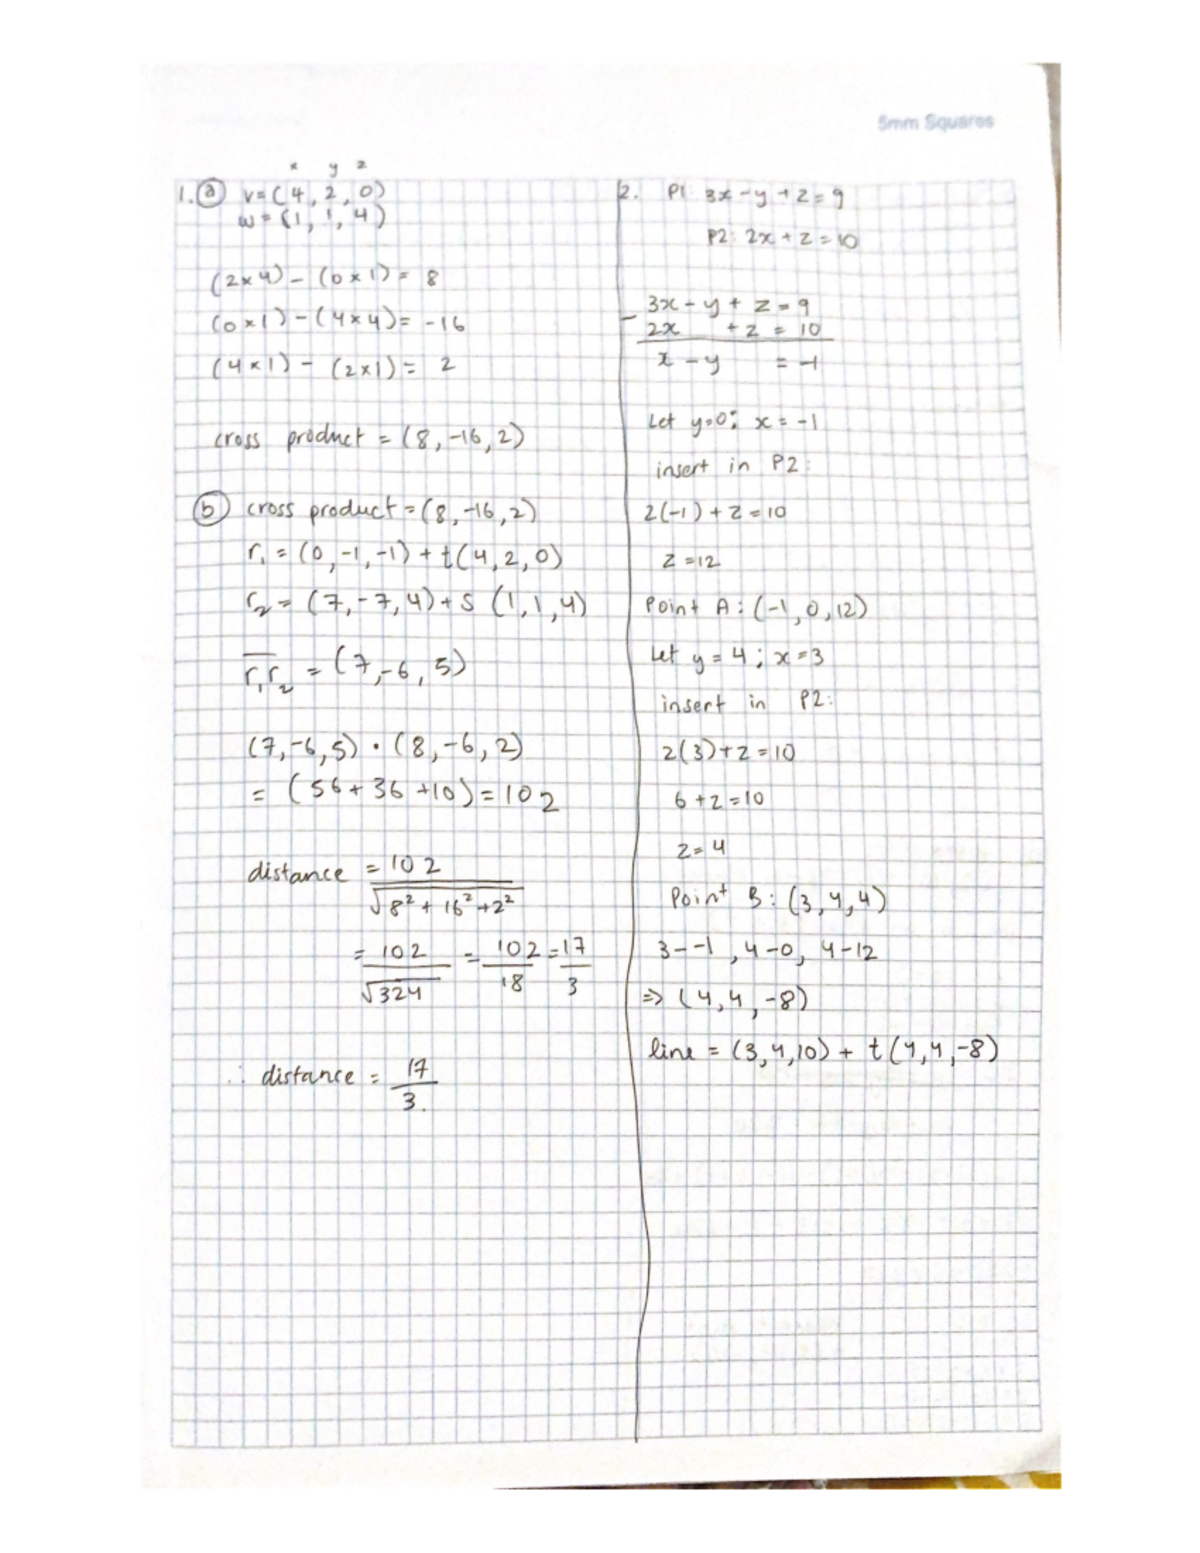 5mm Squares
x y z
1. (a) v = (4, 2, 0)
w = (1, 1, 4)
(2×4) - (0×1) = 8
(0×1) - (4×4) = -16
(4×1) - (2×1) = 2
cross product = (8, -16, 2)
(b) cross product = (8, -16, 2)
r₁ = (0, -1, -1) + t(4, 2, 0)
r₂ = (7, -7, 4) + s (1, 1, 4)
r₁r₂ = (7, -6, 5)
(7, -6, 5) · (8, -6, 2)
= (56 + 36 + 10) = 102
distance = 102
√8² + 16² + 2²
= 102 = 102 = 17
√324 18 3
∴ distance = 17
3.
2. P1: 3x - y + z = 9
P2: 2x + z = 10
3x - y + z = 9
- 2x + z = 10
x - y = -1
Let y=0; x = -1
insert in P2:
2(-1) + z = 10
z = 12
Point A: (-1, 0, 12)
Let y = 4; x = 3
insert in P2:
2(3) + z = 10
6 + z = 10
z = 4
Point B: (3, 4, 4)
3--1, 4-0, 4-12
⇒ (4, 4, -8)
line = (3, 4, 10) + t(4, 4, -8)